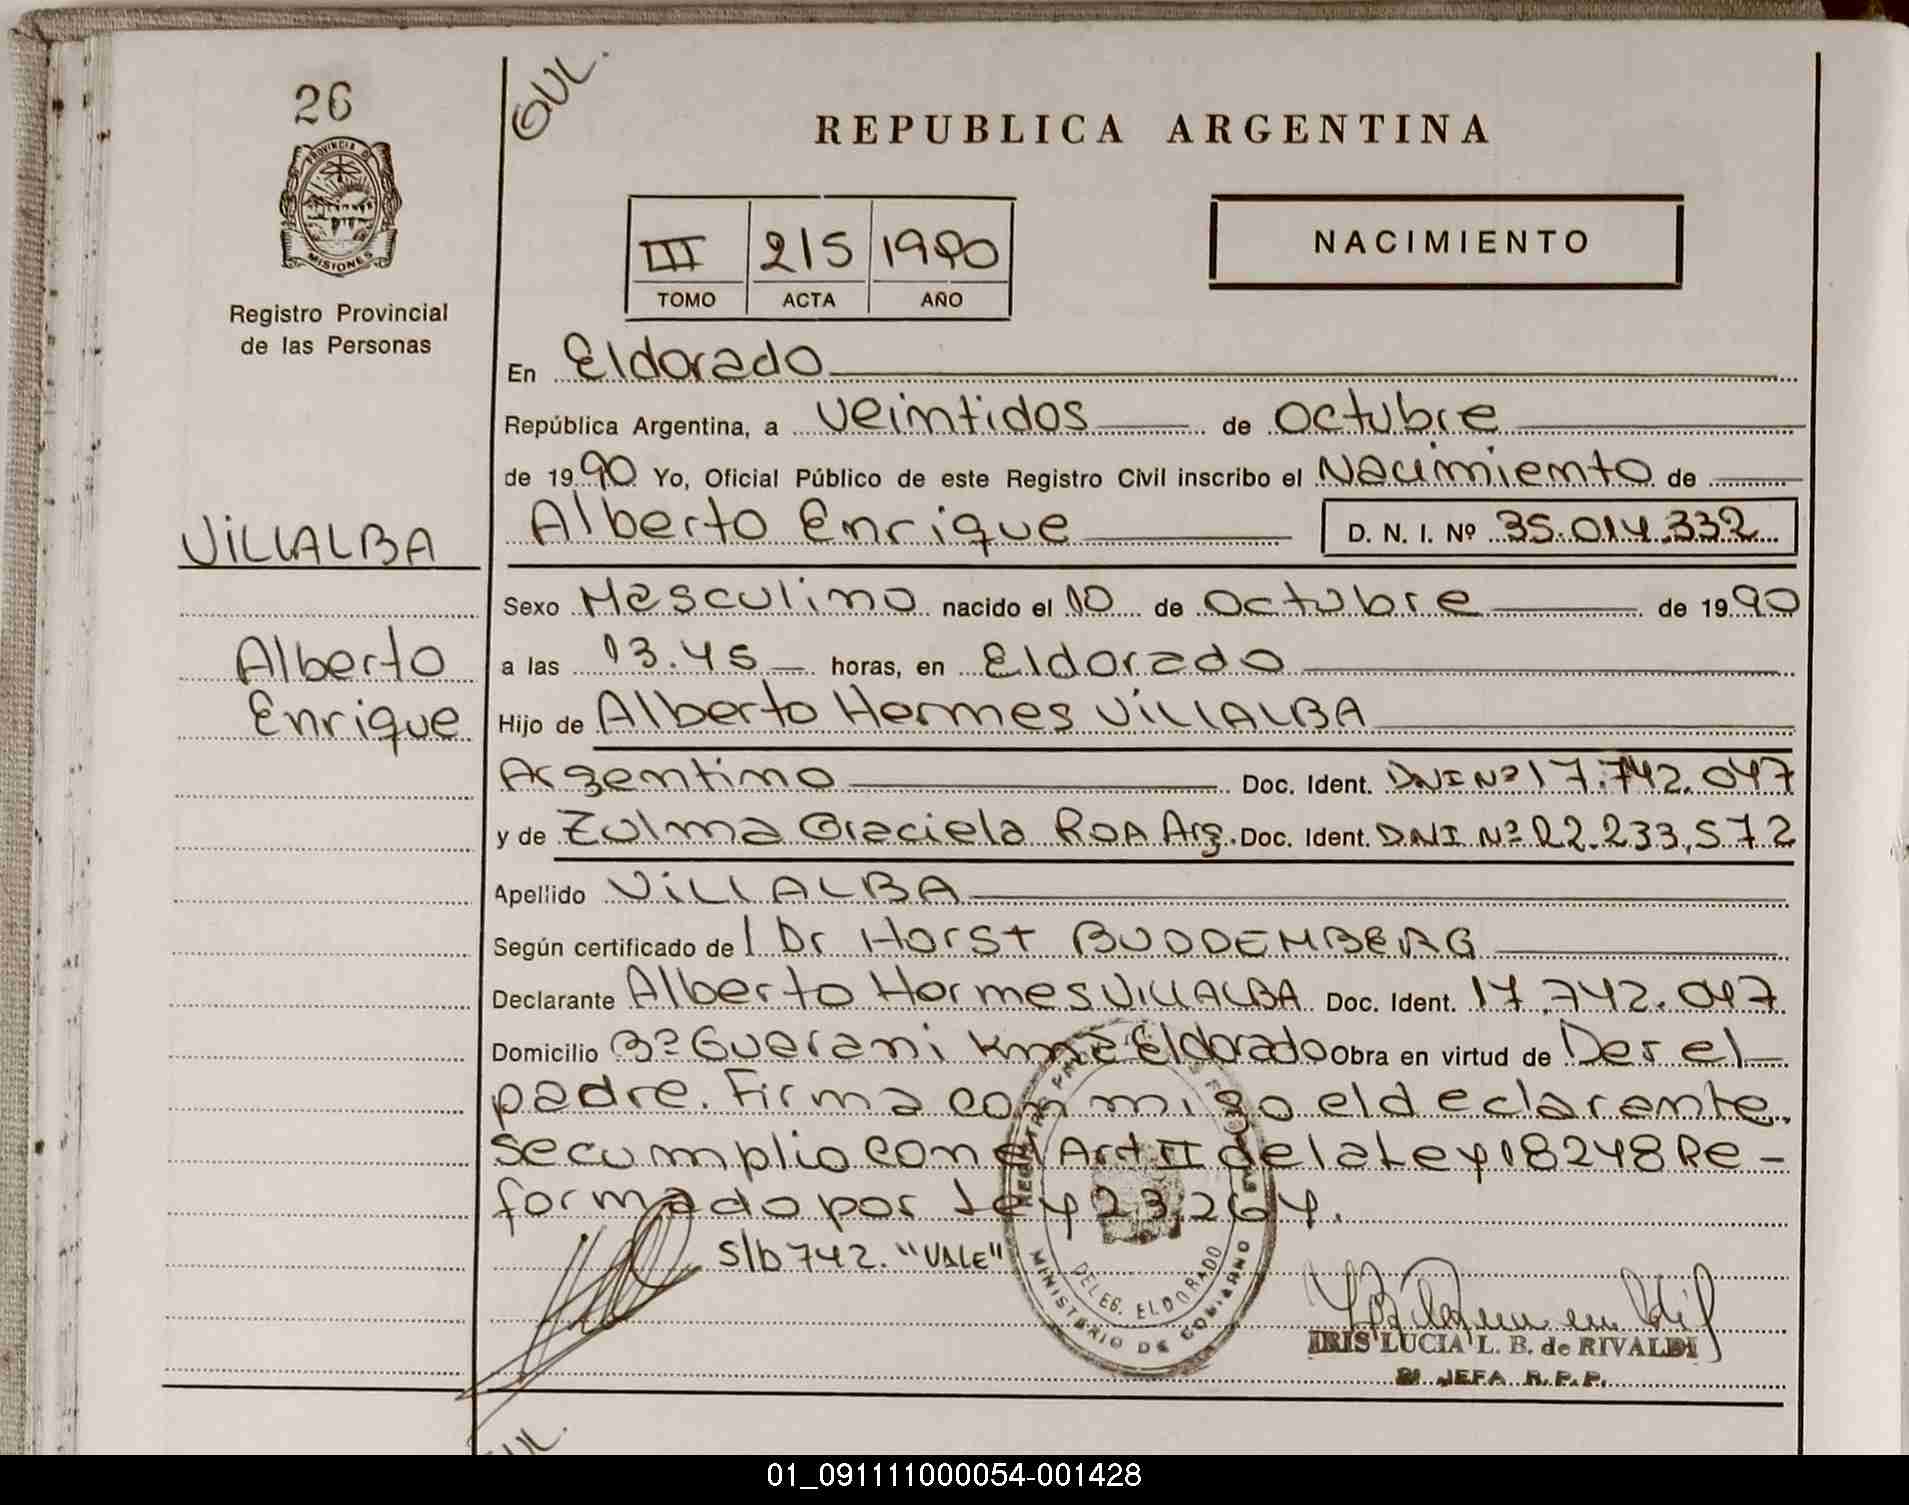 26
GUL.
PROVINCIA DE
MISIONES
Registro Provincial
de las Personas
REPUBLICA ARGENTINA
III 215 1990
TOMO ACTA AÑO
NACIMIENTO
En Eldorado
República Argentina, a veintidos de octubre
de 1990 Yo, Oficial Público de este Registro Civil inscribo el Nacimiento de
VILLALBA
Alberto Enrique D. N. I. Nº 35.014.332
Sexo Masculino nacido el 10 de octubre de 1990
Alberto
a las 13.45 horas, en Eldorado
Enrique
Hijo de Alberto Hermes VILLALBA
Argentino Doc. Ident. DNI Nº 17.742.047
y de Zulma Graciela ROA Arg. Doc. Ident. DNI Nº 22.233.572
Apellido VILLALBA
Según certificado del Dr Horst BUDDEMBERG
Declarante Alberto Hermes VILLALBA Doc. Ident. 17.742.047
Domicilio Bº Guarani Eldorado Obra en virtud de Der el
padre. Firma conmigo el declarante,
se cumplio con el Art II de la Ley 18248 Re-
formado por Ley 23.264.
S/b 742. "VALE"
DELEG. ELDORADO
MINISTERIO DE GOBIERNO
IRIS LUCIA L. B. de RIVALDI
JEFA R.P.P.
GUL.
01_091111000054-001428